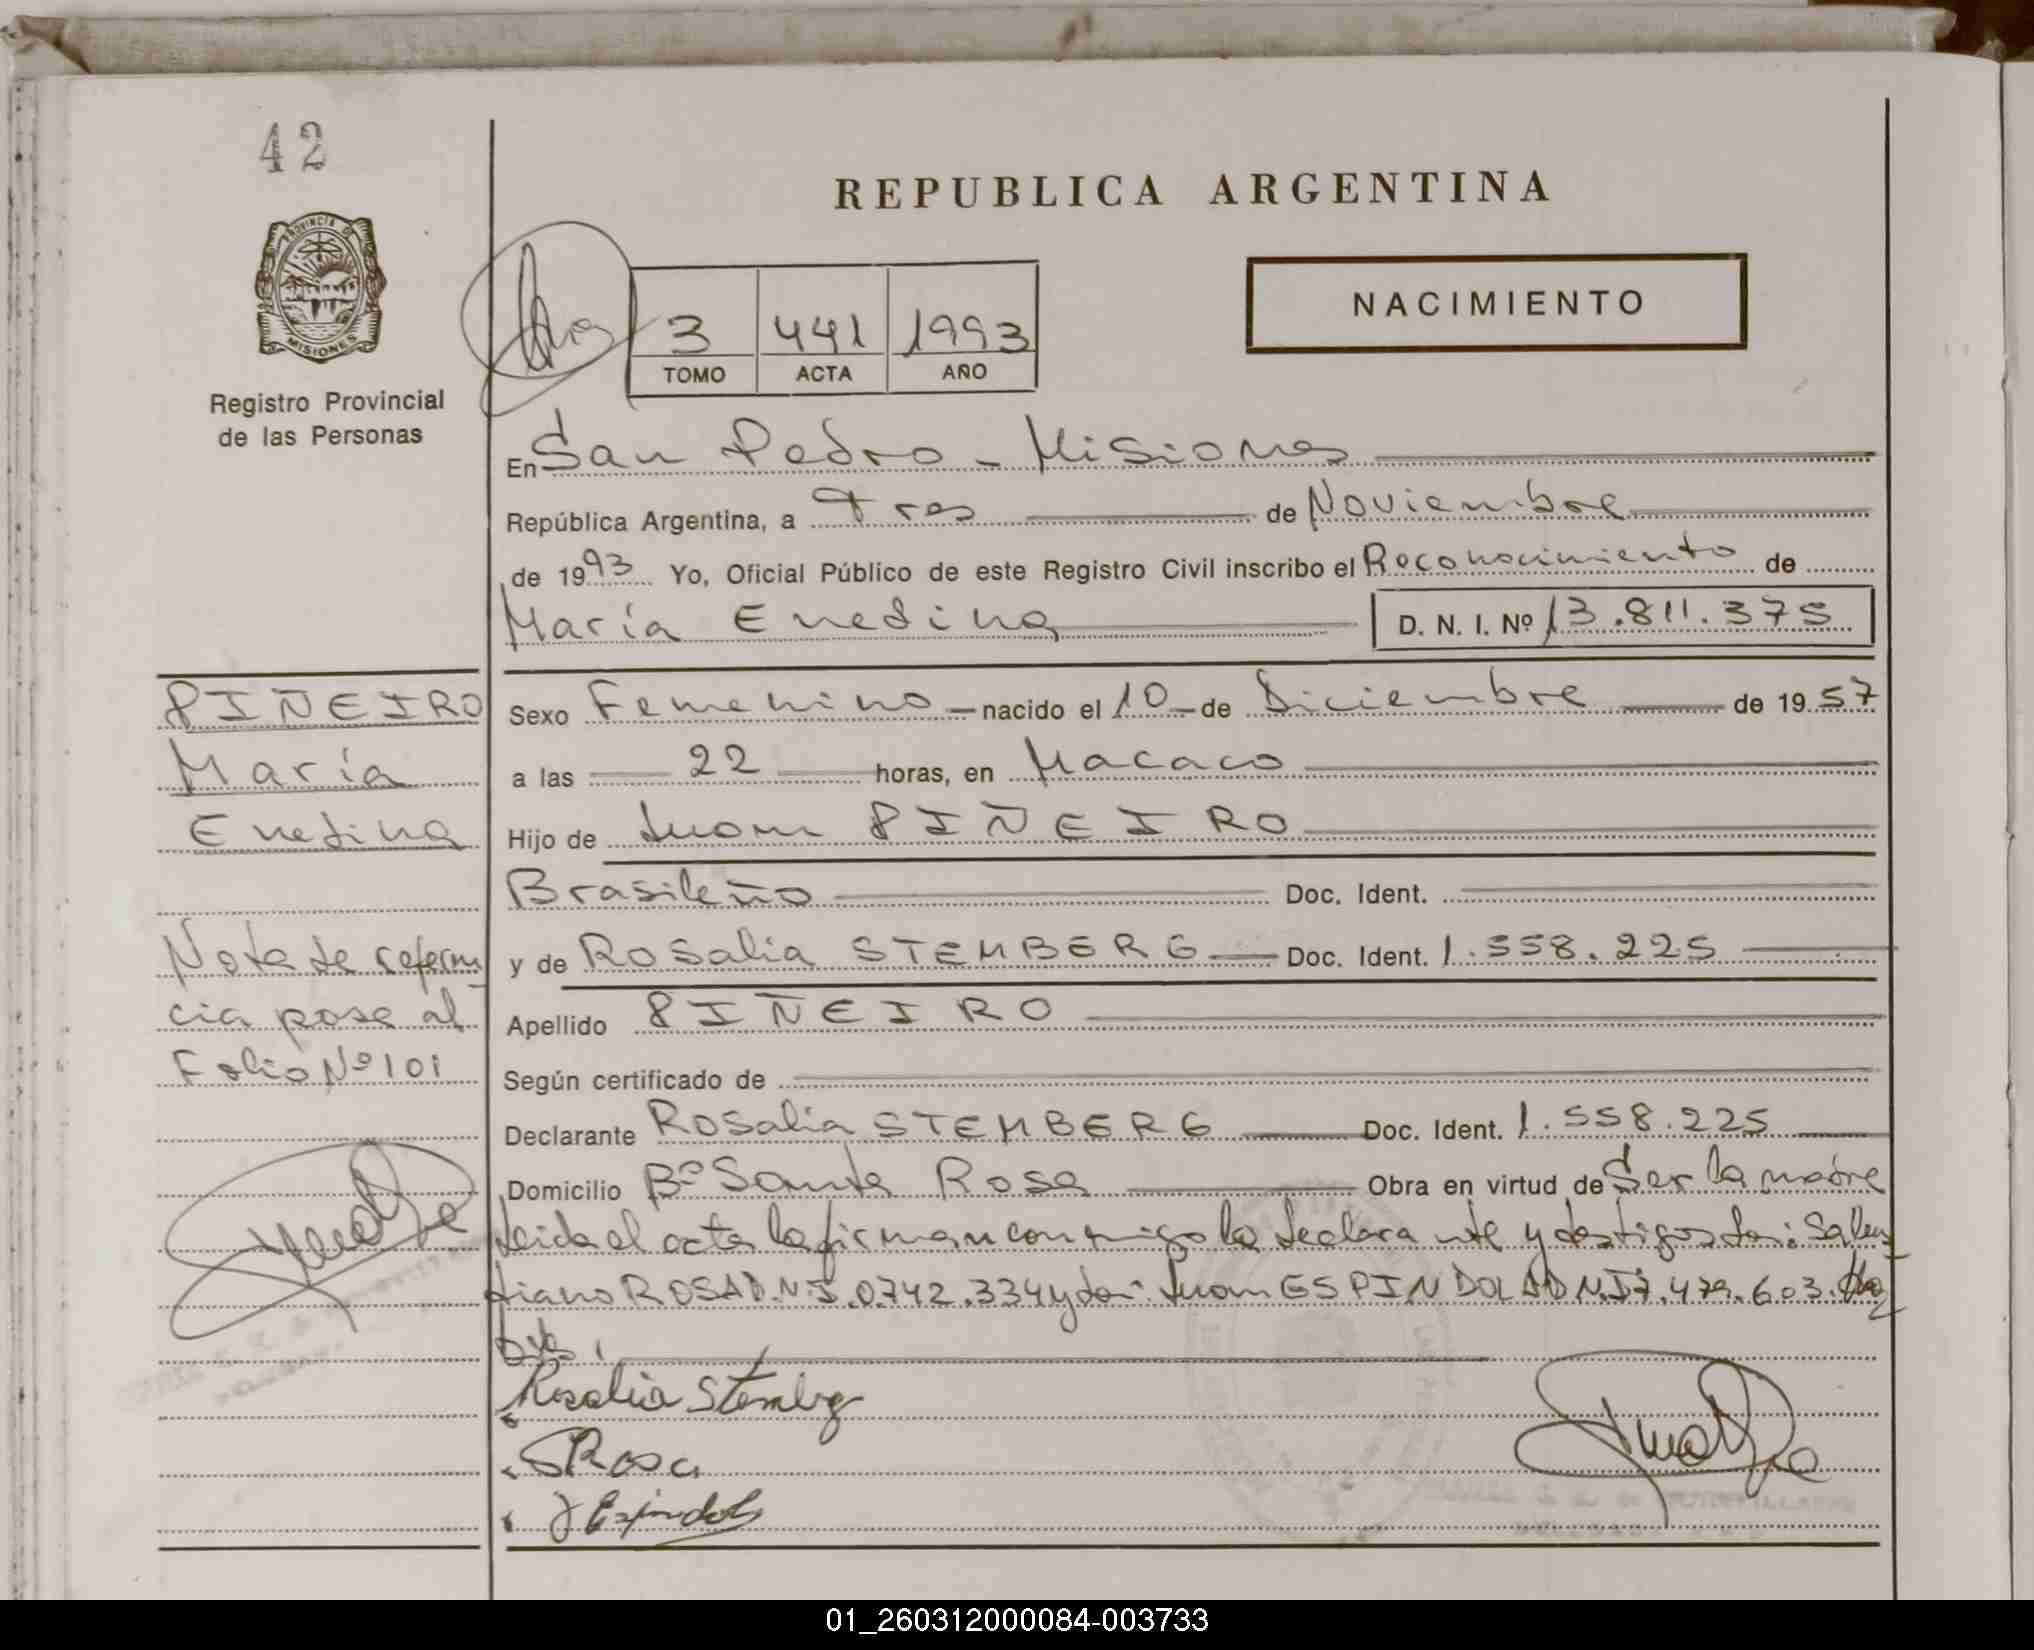 42
REPUBLICA ARGENTINA
PROVINCIA DE
MISIONES
Registro Provincial
de las Personas
NACIMIENTO
3 441 1993
TOMO ACTA AÑO
En San Pedro - Misiones
República Argentina, a Tres de Noviembre
de 1993 Yo, Oficial Público de este Registro Civil inscribo el Reconocimiento de
María Enedina D. N. I. Nº 13.811.375
PIÑEIRO
María
Enedina
Nota de referen
cia pase al
Folio Nº 101
Sexo Femenino nacido el 10 de Diciembre de 1957
a las 22 horas, en Macaco
Hijo de Juan PIÑEIRO
Brasileño Doc. Ident.
y de Rosalia STEMBERG Doc. Ident. 1.558.225
Apellido PIÑEIRO
Según certificado de
Declarante Rosalia STEMBERG Doc. Ident. 1.558.225
Domicilio Bº Santa Rosa Obra en virtud de Ser la madre
Leida el acta la firman conmigo la declarante y testigos
tiano ROSA D.N.I. 0.742.334 y Juan ESPINDOLA D.N.I 7.479.603.
Rosalia Stemberg
S Rosa
J Espindola
01_260312000084-003733